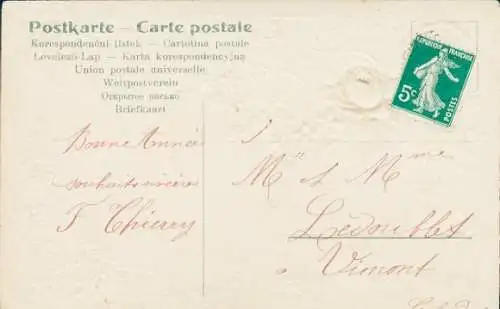 Postkarte – Carte postale
Korespondenční lístek – Cartolina postale
Levelező-Lap – Karta korespondencyjna
Union postale universelle
Weltpostverein
Открытое письмо
Briefkaart
REPUBLIQUE FRANÇAISE
5c
POSTES
Bonne Année
souhaits sincères
F Thierry
Mr et Mme
Ledoubbet
à Vimont